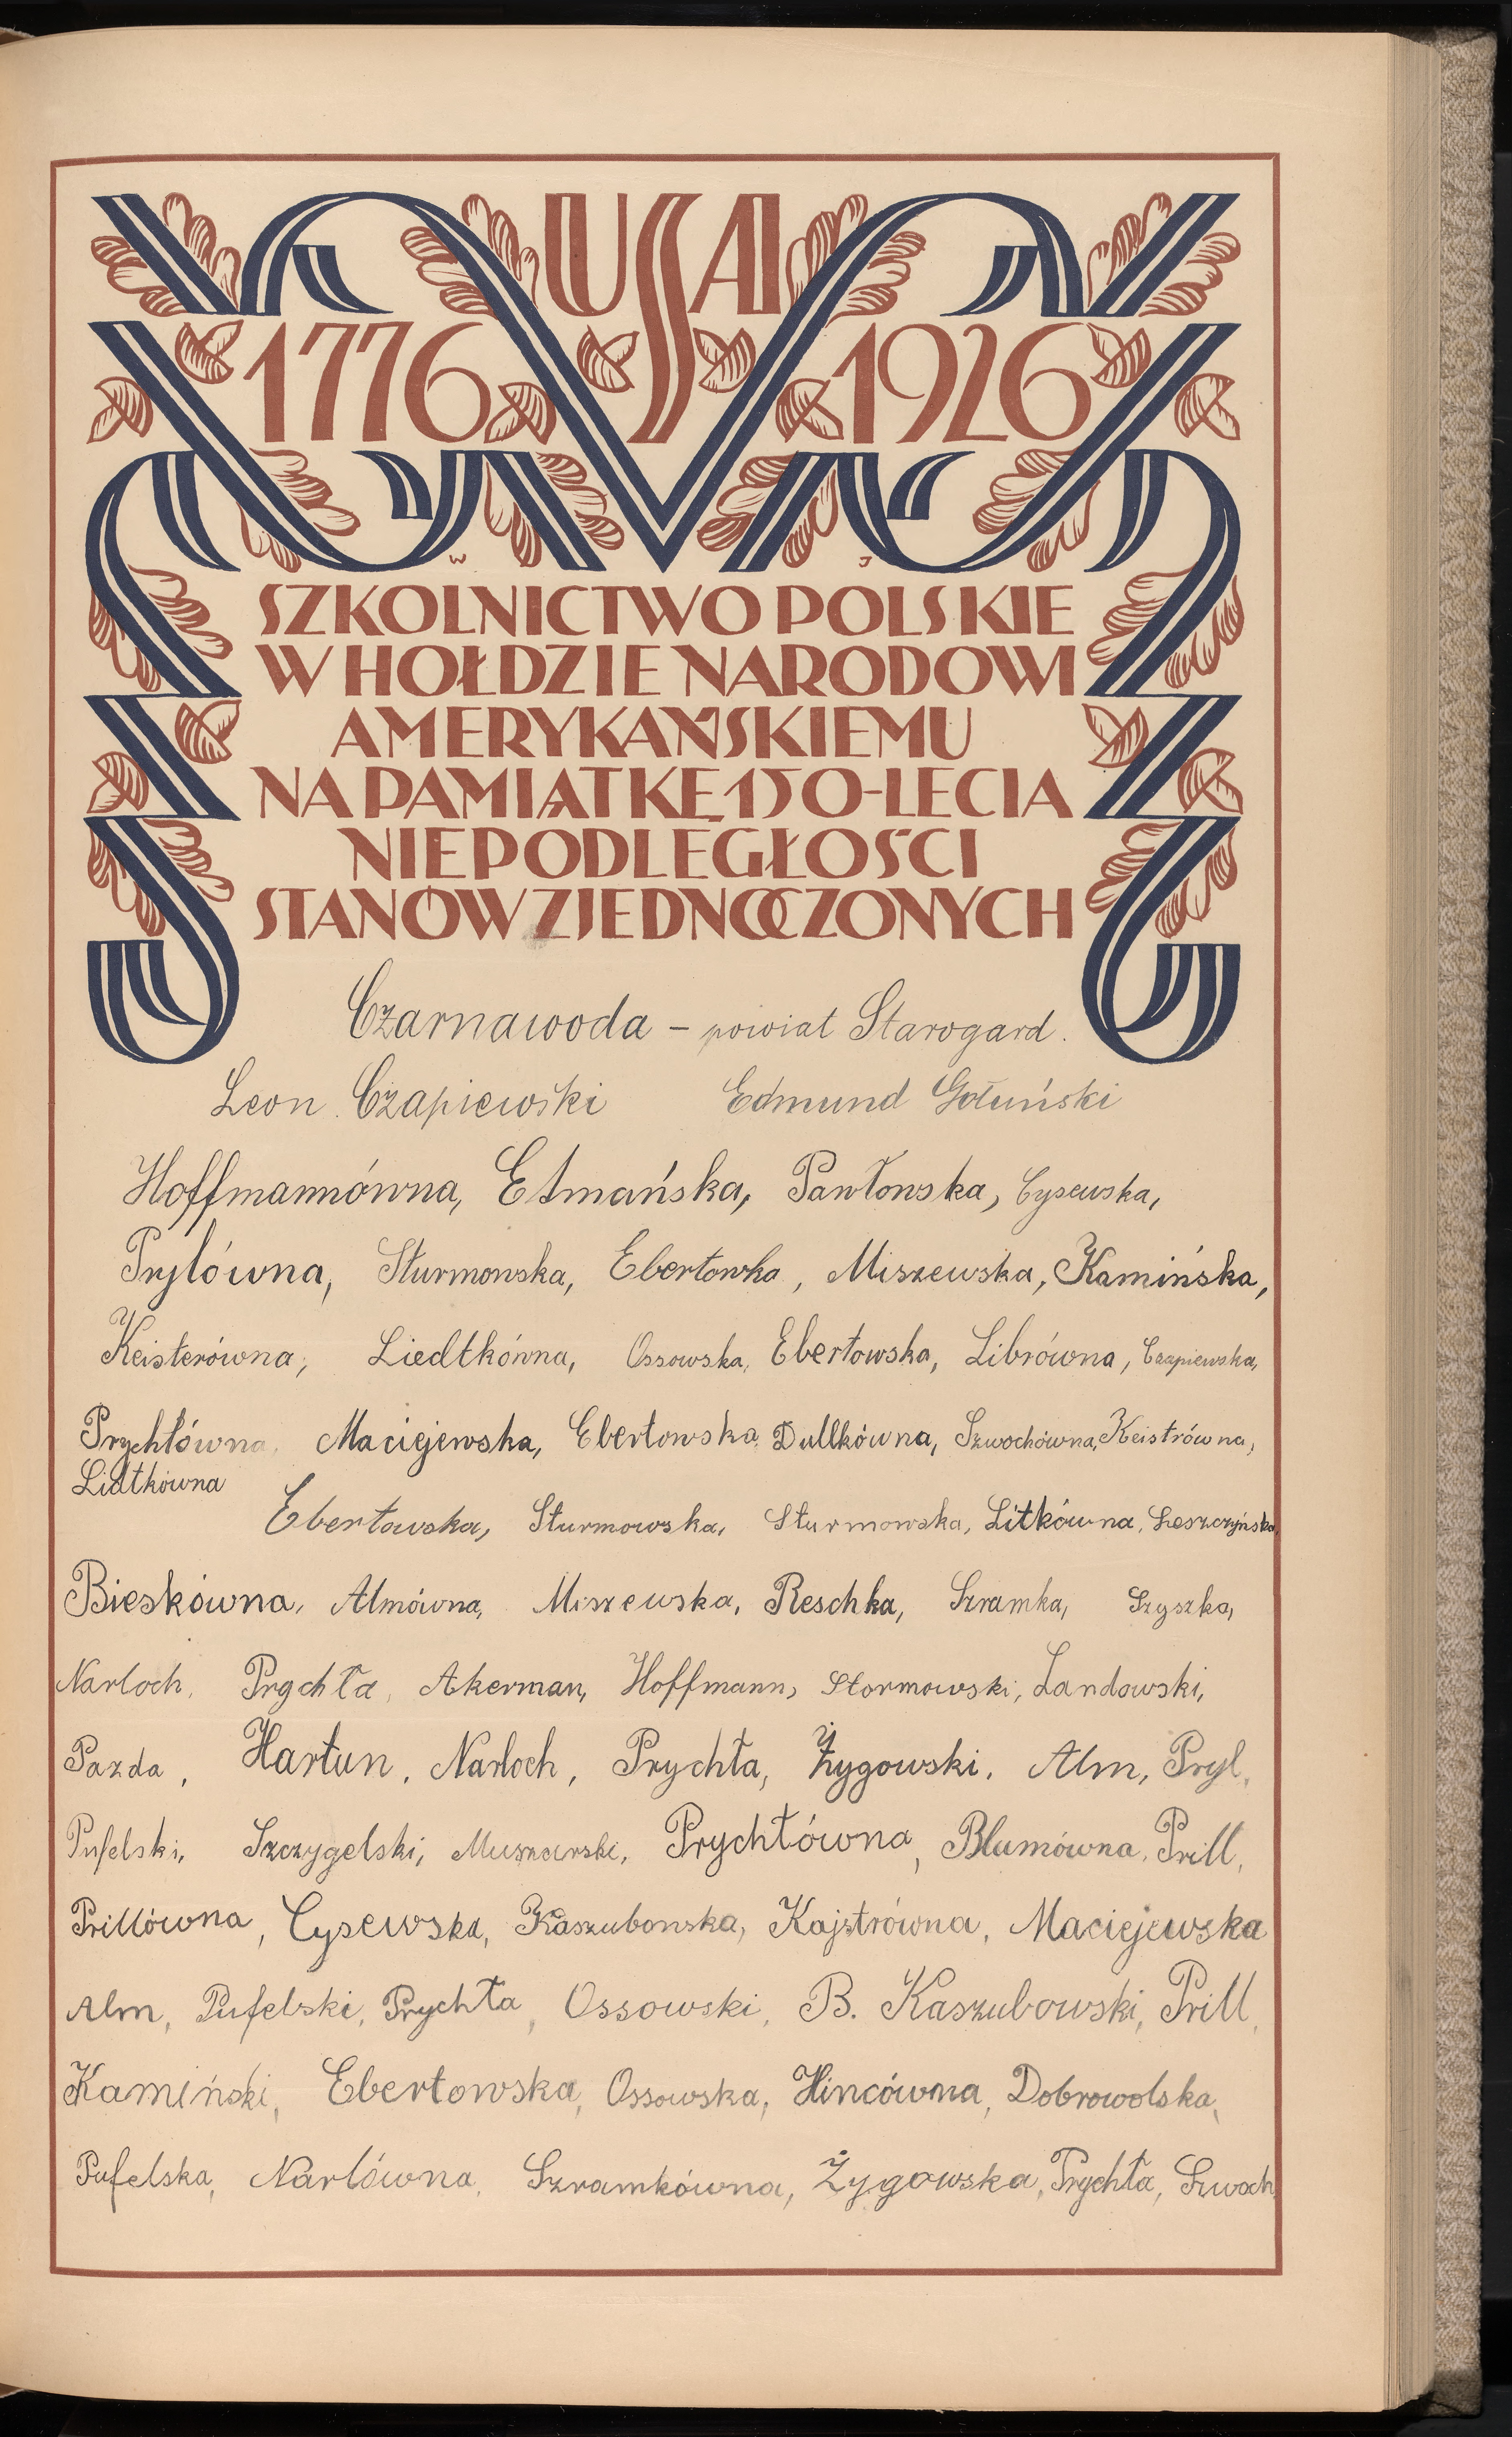 USA
1776 1926
W J
SZKOLNICTWO POLSKIE
W HOŁDZIE NARODOWI
AMERYKAŃSKIEMU
NA PAMIĄTKĘ 150-LECIA
NIEPODLEGŁOŚCI
STANÓW ZJEDNOCZONYCH
Czarnawoda – powiat Starogard.
Leon Czapiewski Edmund Gołuński
Hoffmannówna, Etmańska, Pawłowska, Cysewska,
Prylówna, Sturmowska, Ebertowka, Miszewska, Kamińska,
Keisterówna, Liedtkówna, Ossowska, Ebertowska, Librówna, Czapiewska,
Prychłówna, Maciejewska, Ebertowska, Dullkówna, Szwochówna, Keistrówna,
Lidtkówna
Ebertowska, Sturmowska, Sturmowska, Litkówna, Leszczyńska,
Bieskówna, Almówna, Miszewska, Reschka, Szramka, Szyszka,
Narloch, Prychła, Akerman, Hoffmann, Stormowski, Landowski,
Pazda, Hartun, Narloch, Prychła, Żygowski, Alm, Pryl,
Pufelski, Szczygelski, Muszarski, Prychłówna, Blumówna, Prill,
Prillówna, Cysewska, Kaszubowska, Kajstrówna, Maciejewska
Alm, Pufelski, Prychła, Ossowski, B. Kaszubowski, Prill,
Kamiński, Ebertowska, Ossowska, Hincówna, Dobrowolska,
Pufelska, Narlówna, Szramkówna, Żygowska, Prychła, Szwoch